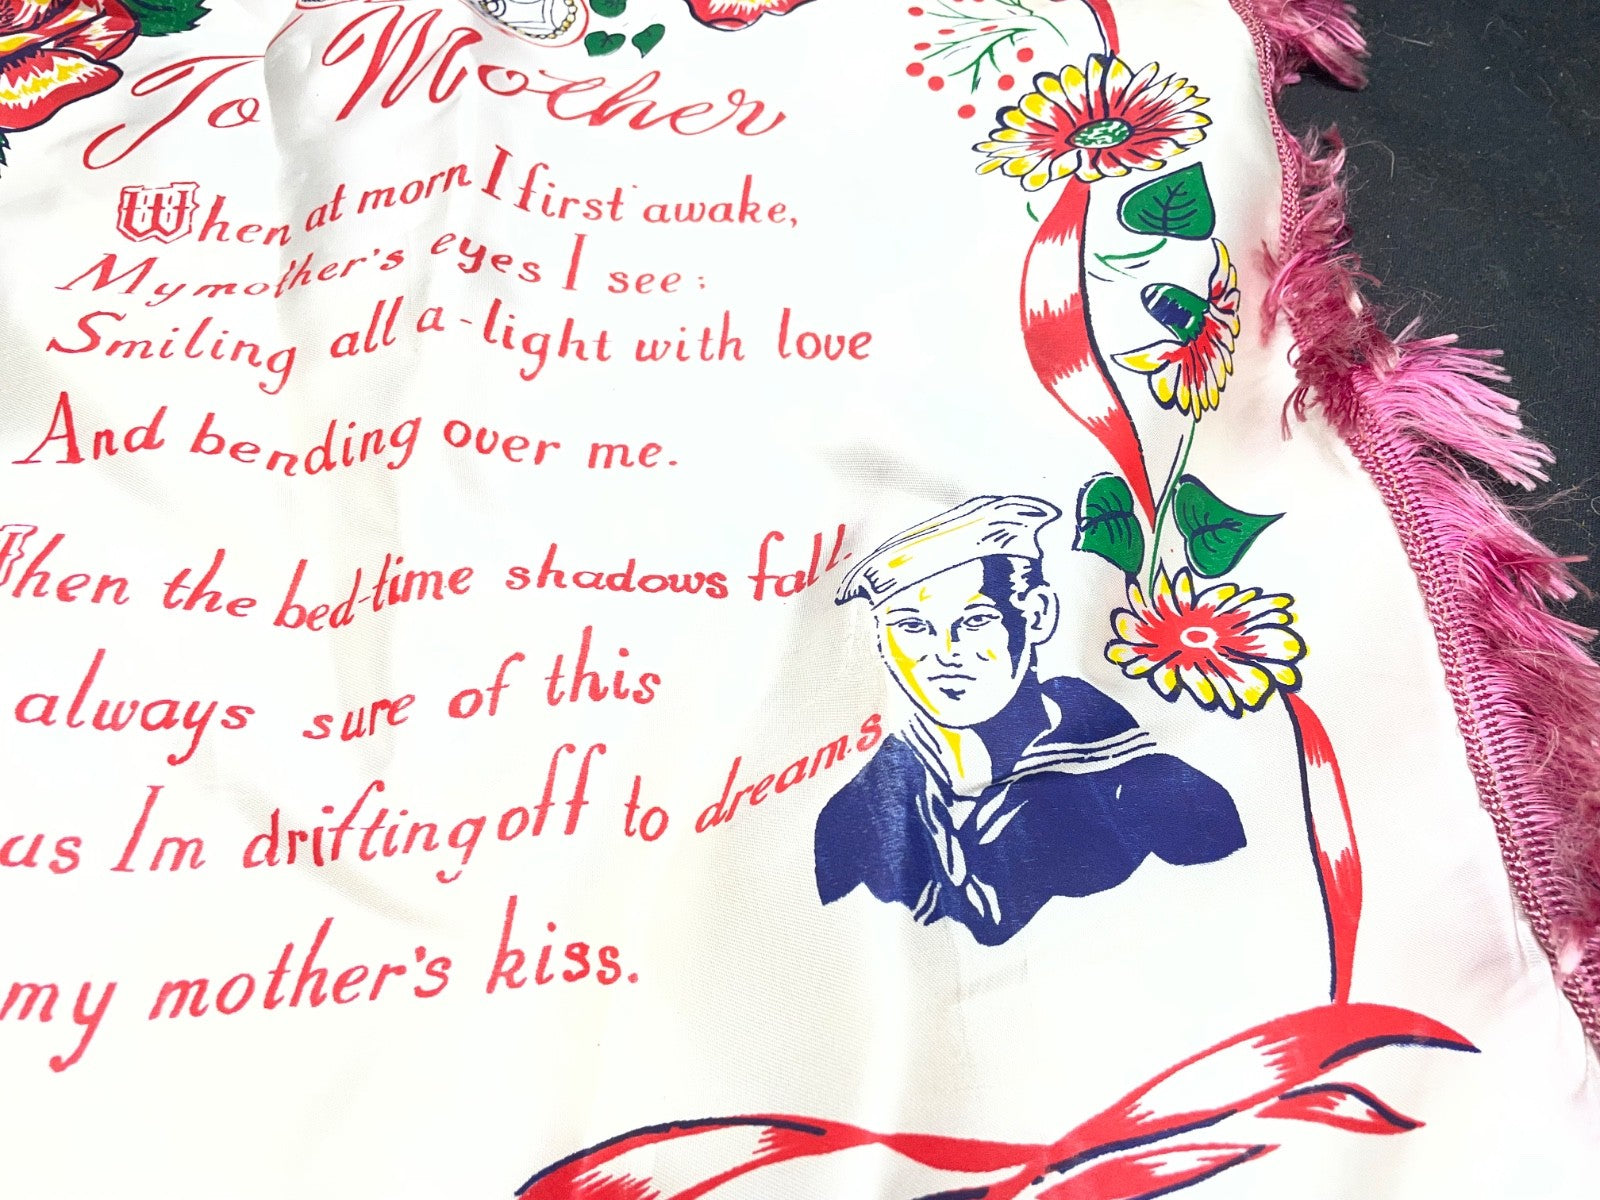 To Mother
When at morn I first awake,
My mother's eyes I see:
Smiling all a-light with love
And bending over me.
When the bed-time shadows fall
always sure of this
as Im drifting off to dreams
my mother's kiss.